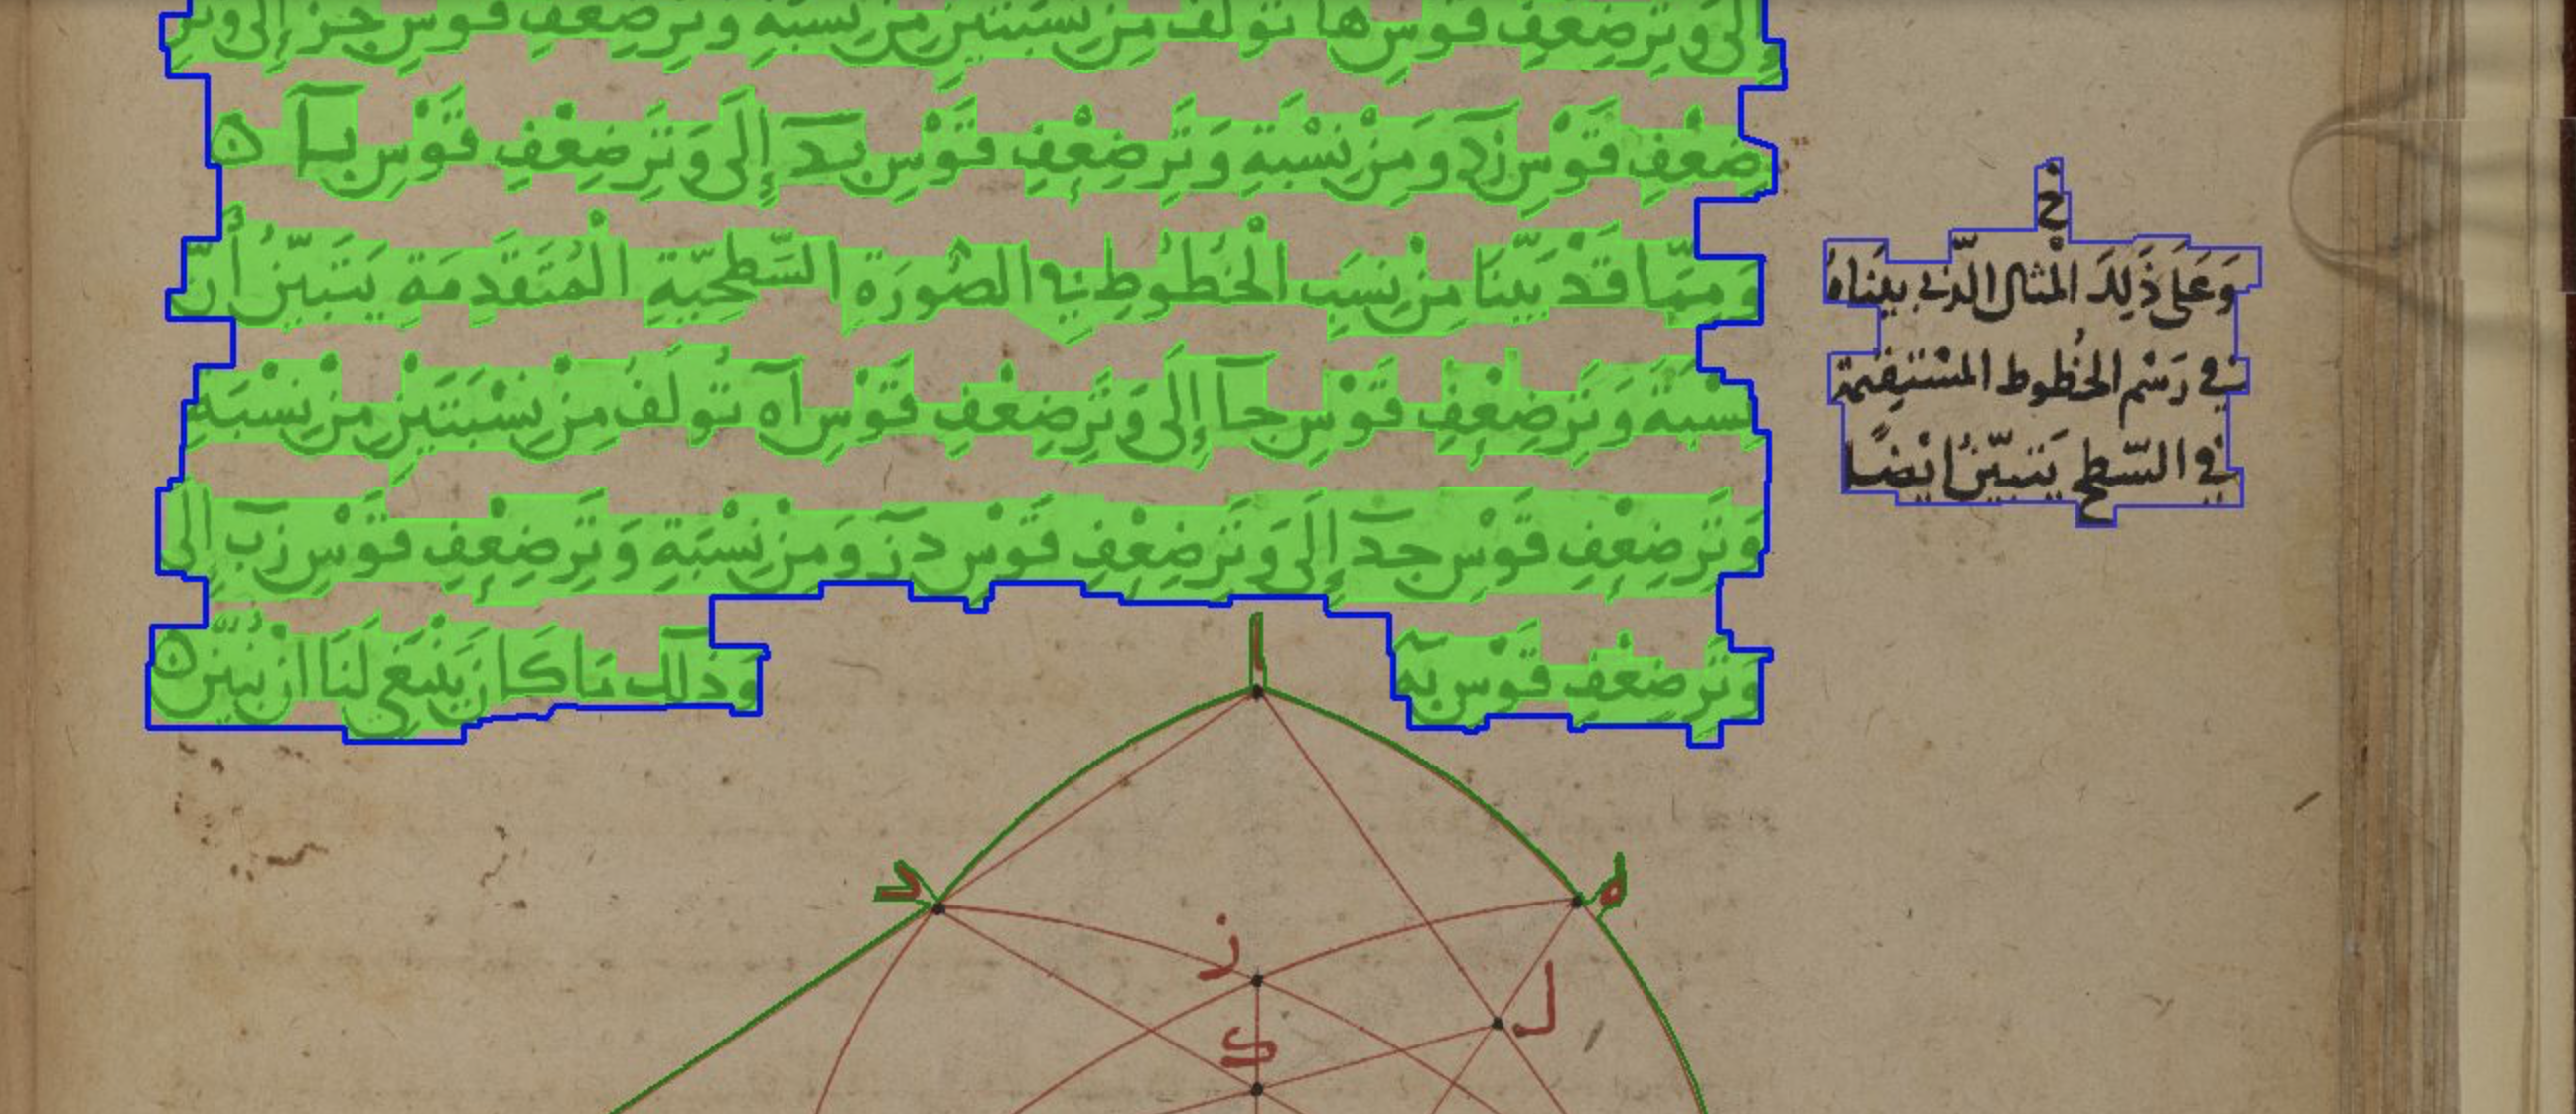 إلى وتر ضعف قوس ها تولف من نسبتين من نسبة وتر ضعف قوس جز إلى وتر
ضِعْفِ قَوْسِ زد وَمِنْ نِسْبَةِ وَتَرِ ضِعْفِ قَوْسِ بد إِلَى وَتَرِ ضِعْفِ قَوْسِ با ه
وَمِمَّا قَدْ بَيَّنَّا مِنْ نِسَبِ الْخُطُوطِ فِي الصُّورَةِ السَّطْحِيَّةِ الْمُتَقَدِّمَةِ يَتَبَيَّنُ أَنَّ
نِسْبَةَ وَتَرِ ضِعْفِ قَوْسِ جا إِلَى وَتَرِ ضِعْفِ قَوْسِ اه تُولَفُ مِنْ نِسْبَتَيْنِ مِنْ نِسْبَةِ
وَتَرِ ضِعْفِ قَوْسِ جد إِلَى وَتَرِ ضِعْفِ قَوْسِ دز وَمِنْ نِسْبَةِ وَتَرِ ضِعْفِ قَوْسِ زب إِلَى
وَتَرِ ضِعْفِ قَوْسِ به وَذلك مَا كَانَ يَنْبَغِي لَنَا انْ نُبَيِّنَ ه
خ
وَعَلَى ذَلِكَ الْمثال الّذي بيّناهُ
في رَسْم الخُطوط المسْتقيمة
في السّطح يَتبيّنُ ايْضًا
ا
د
ه
ز
ل
ك